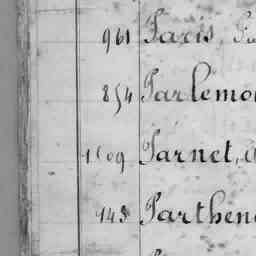 961 Paris, F
854 Parlemo
1509 Parnet, A
943 Parthen